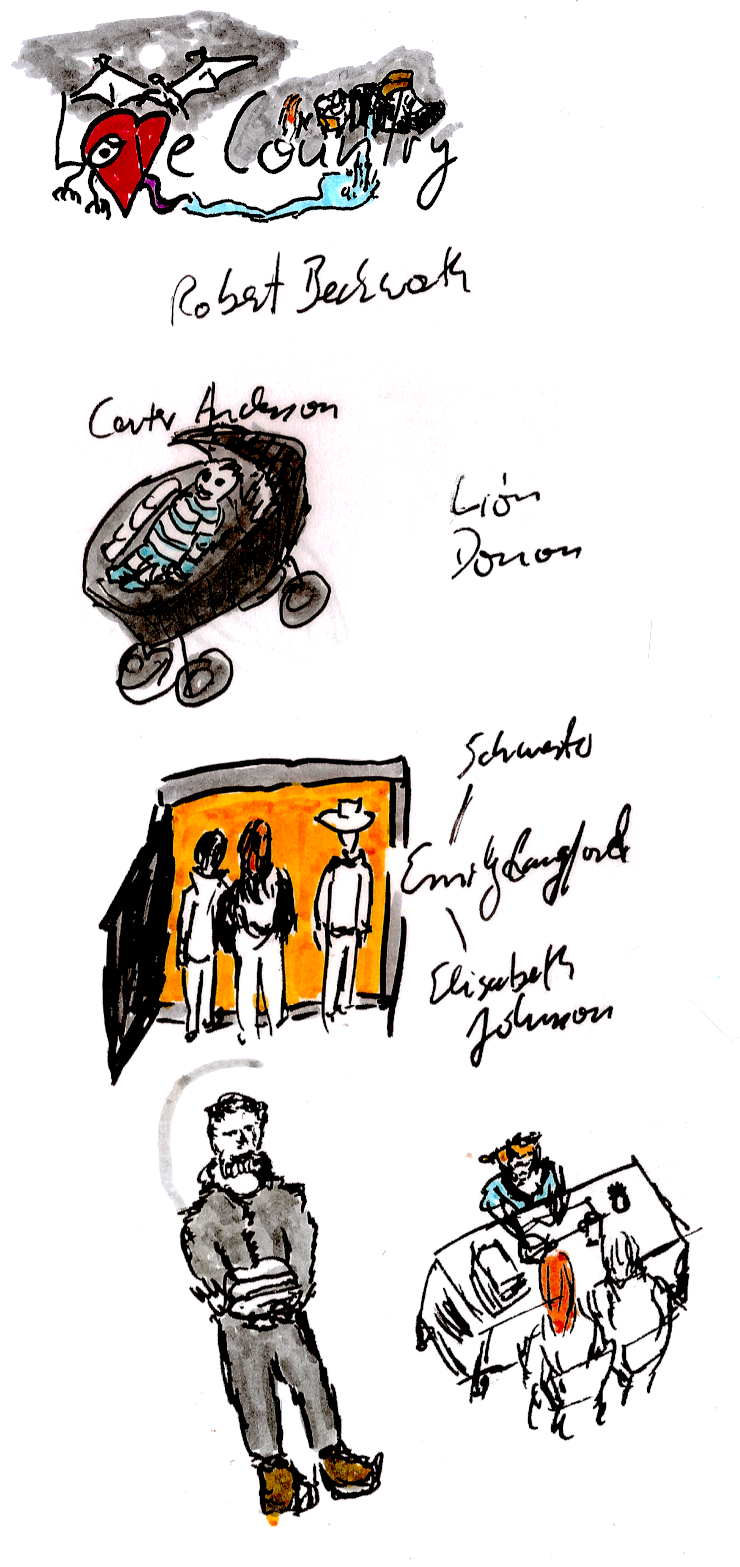 Love Country
Robert Beckwath
Carter Anderson
Lión
Dorion
Schwester
Emily Langford
Elisabeth
Johnson